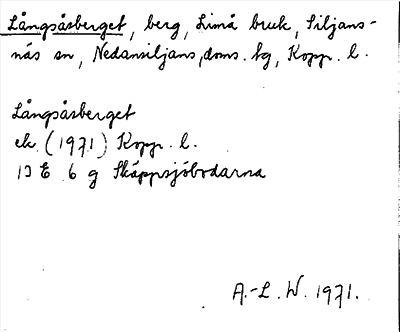 Långsåsberget, berg, Limå bruk, Siljans-
näs sn, Nedansiljans doms. tg, Kopp. l.
Långsåsberget
ek. (1971) Kopp. l.
13 E 6 g Skäppsjöbodarna
A.-L. W. 1971.